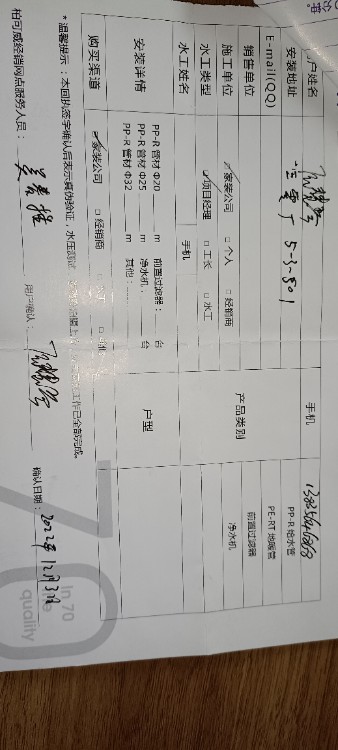 户姓名
手机 13825646868
安装地址 5-3-801
PP-R 给水管
E-mail(QQ)
PE-RT 地暖管
销售单位
产品类别
前置过滤器
施工单位 ✓家装公司 □ 个人 □ 经销商
净水机
水工类型 ✓项目经理 □ 工长 □ 水工
水工姓名 手机
安装详情 PP-R 管材 Φ20 m 前置过滤器: 台
PP-R 管材 Φ25 m 净水机: 台
PP-R 管材 Φ32 m 其他:
户型
购买渠道 ✓家装公司 □ 经销商
*温馨提示:本回执签字确认后表示真伪验证,水压测试 工作已全部完成。
柏可威经销网点服务人员: 用户确认: 确认日期: 2022年12月3日
in 70
quality